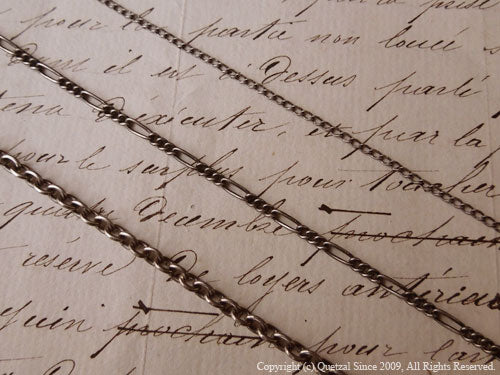 la prise
pour la partie non loué
Dont il est ci Dessus parlé
tena d'exécuter, et par la
pour le surplus pour toucher
quatre Décembre prochain
réserve De loyers antérieu
juin prochain pour
Copyright (c) Quetzal Since 2009, All Rights Reserved.